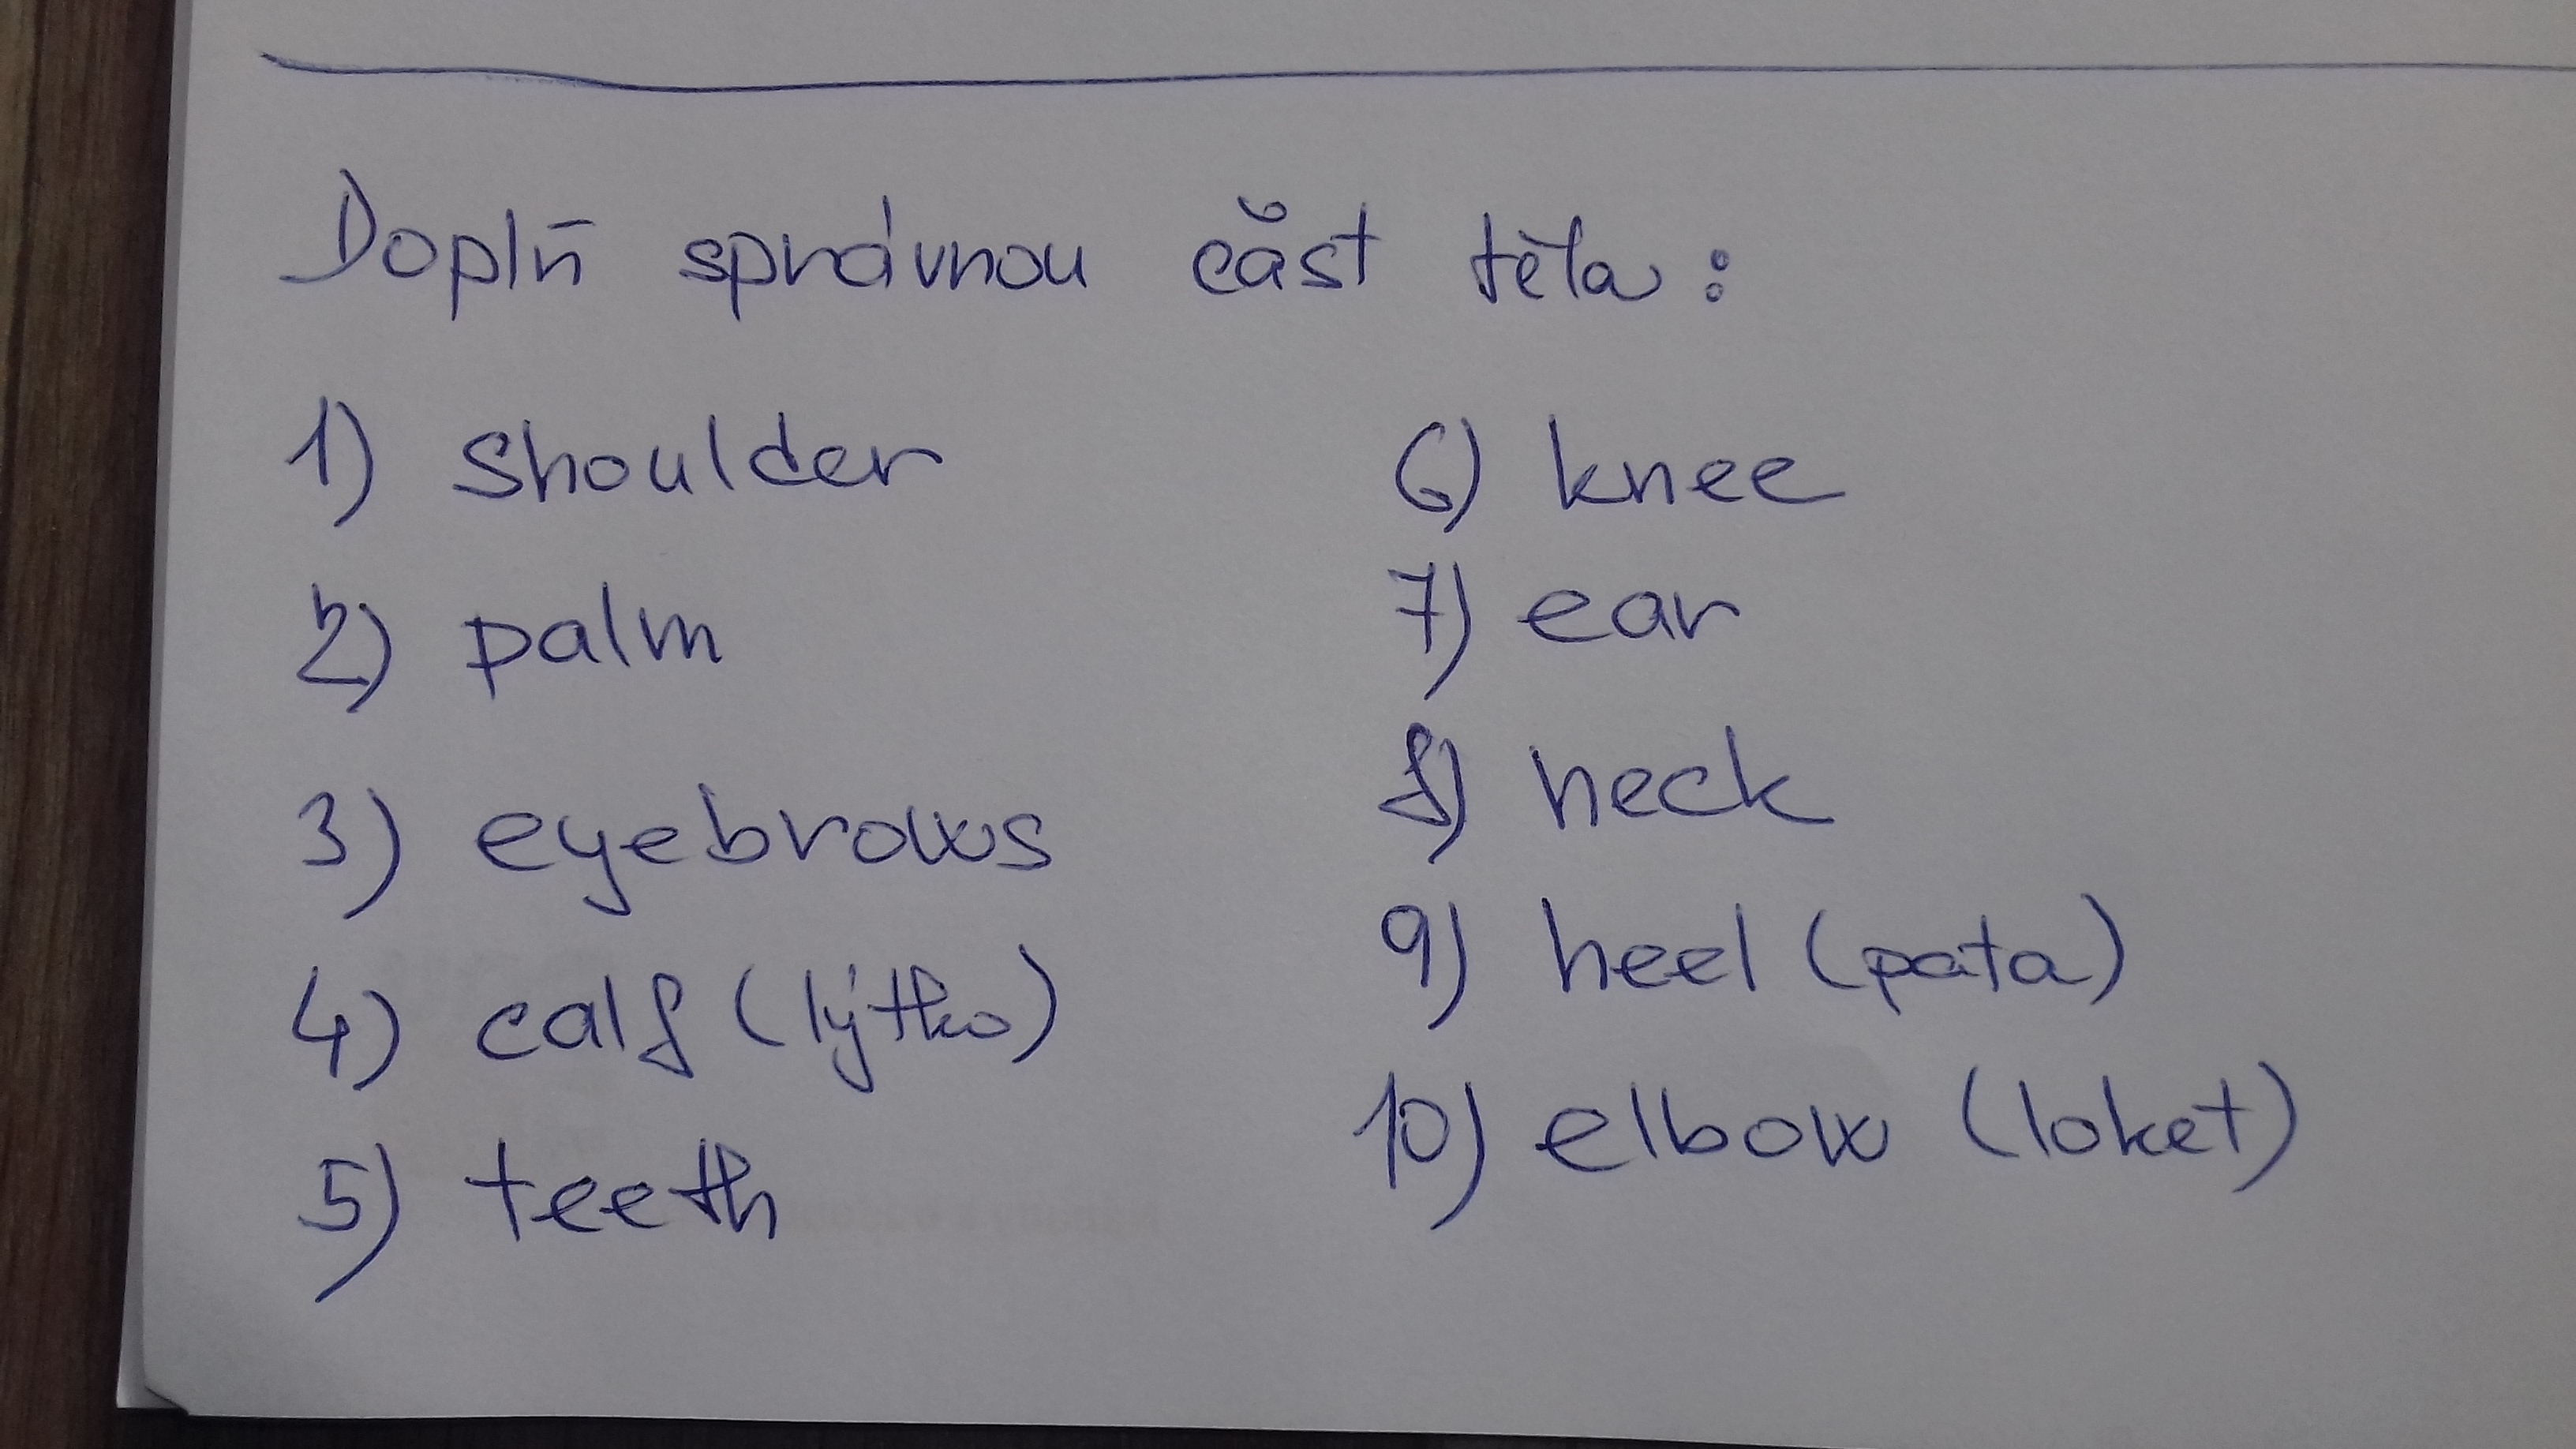 Doplň správnou část těla:
1) shoulder
2) palm
3) eyebrows
4) calf (lýtko)
5) teeth
6) knee
7) ear
8) neck
9) heel (pata)
10) elbow (loket)